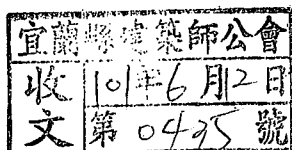 宜蘭縣建築師公會
收文 101年6月12日
第 0495 號